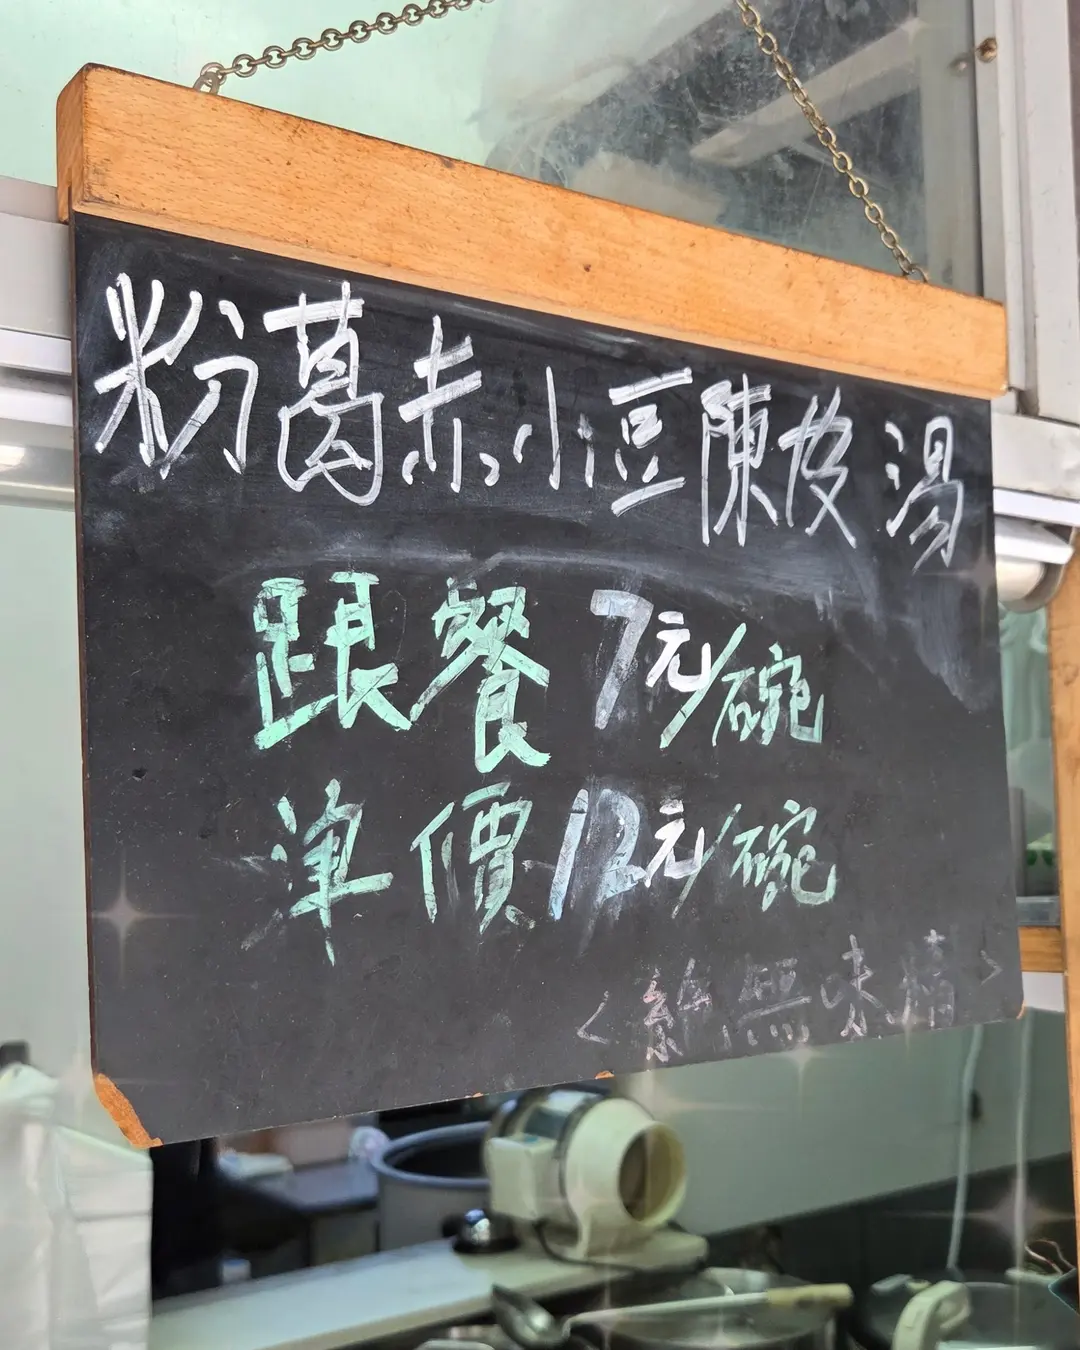 粉葛赤小豆陳皮湯
跟餐7元/碗
淨價12元/碗
<絕無味精>